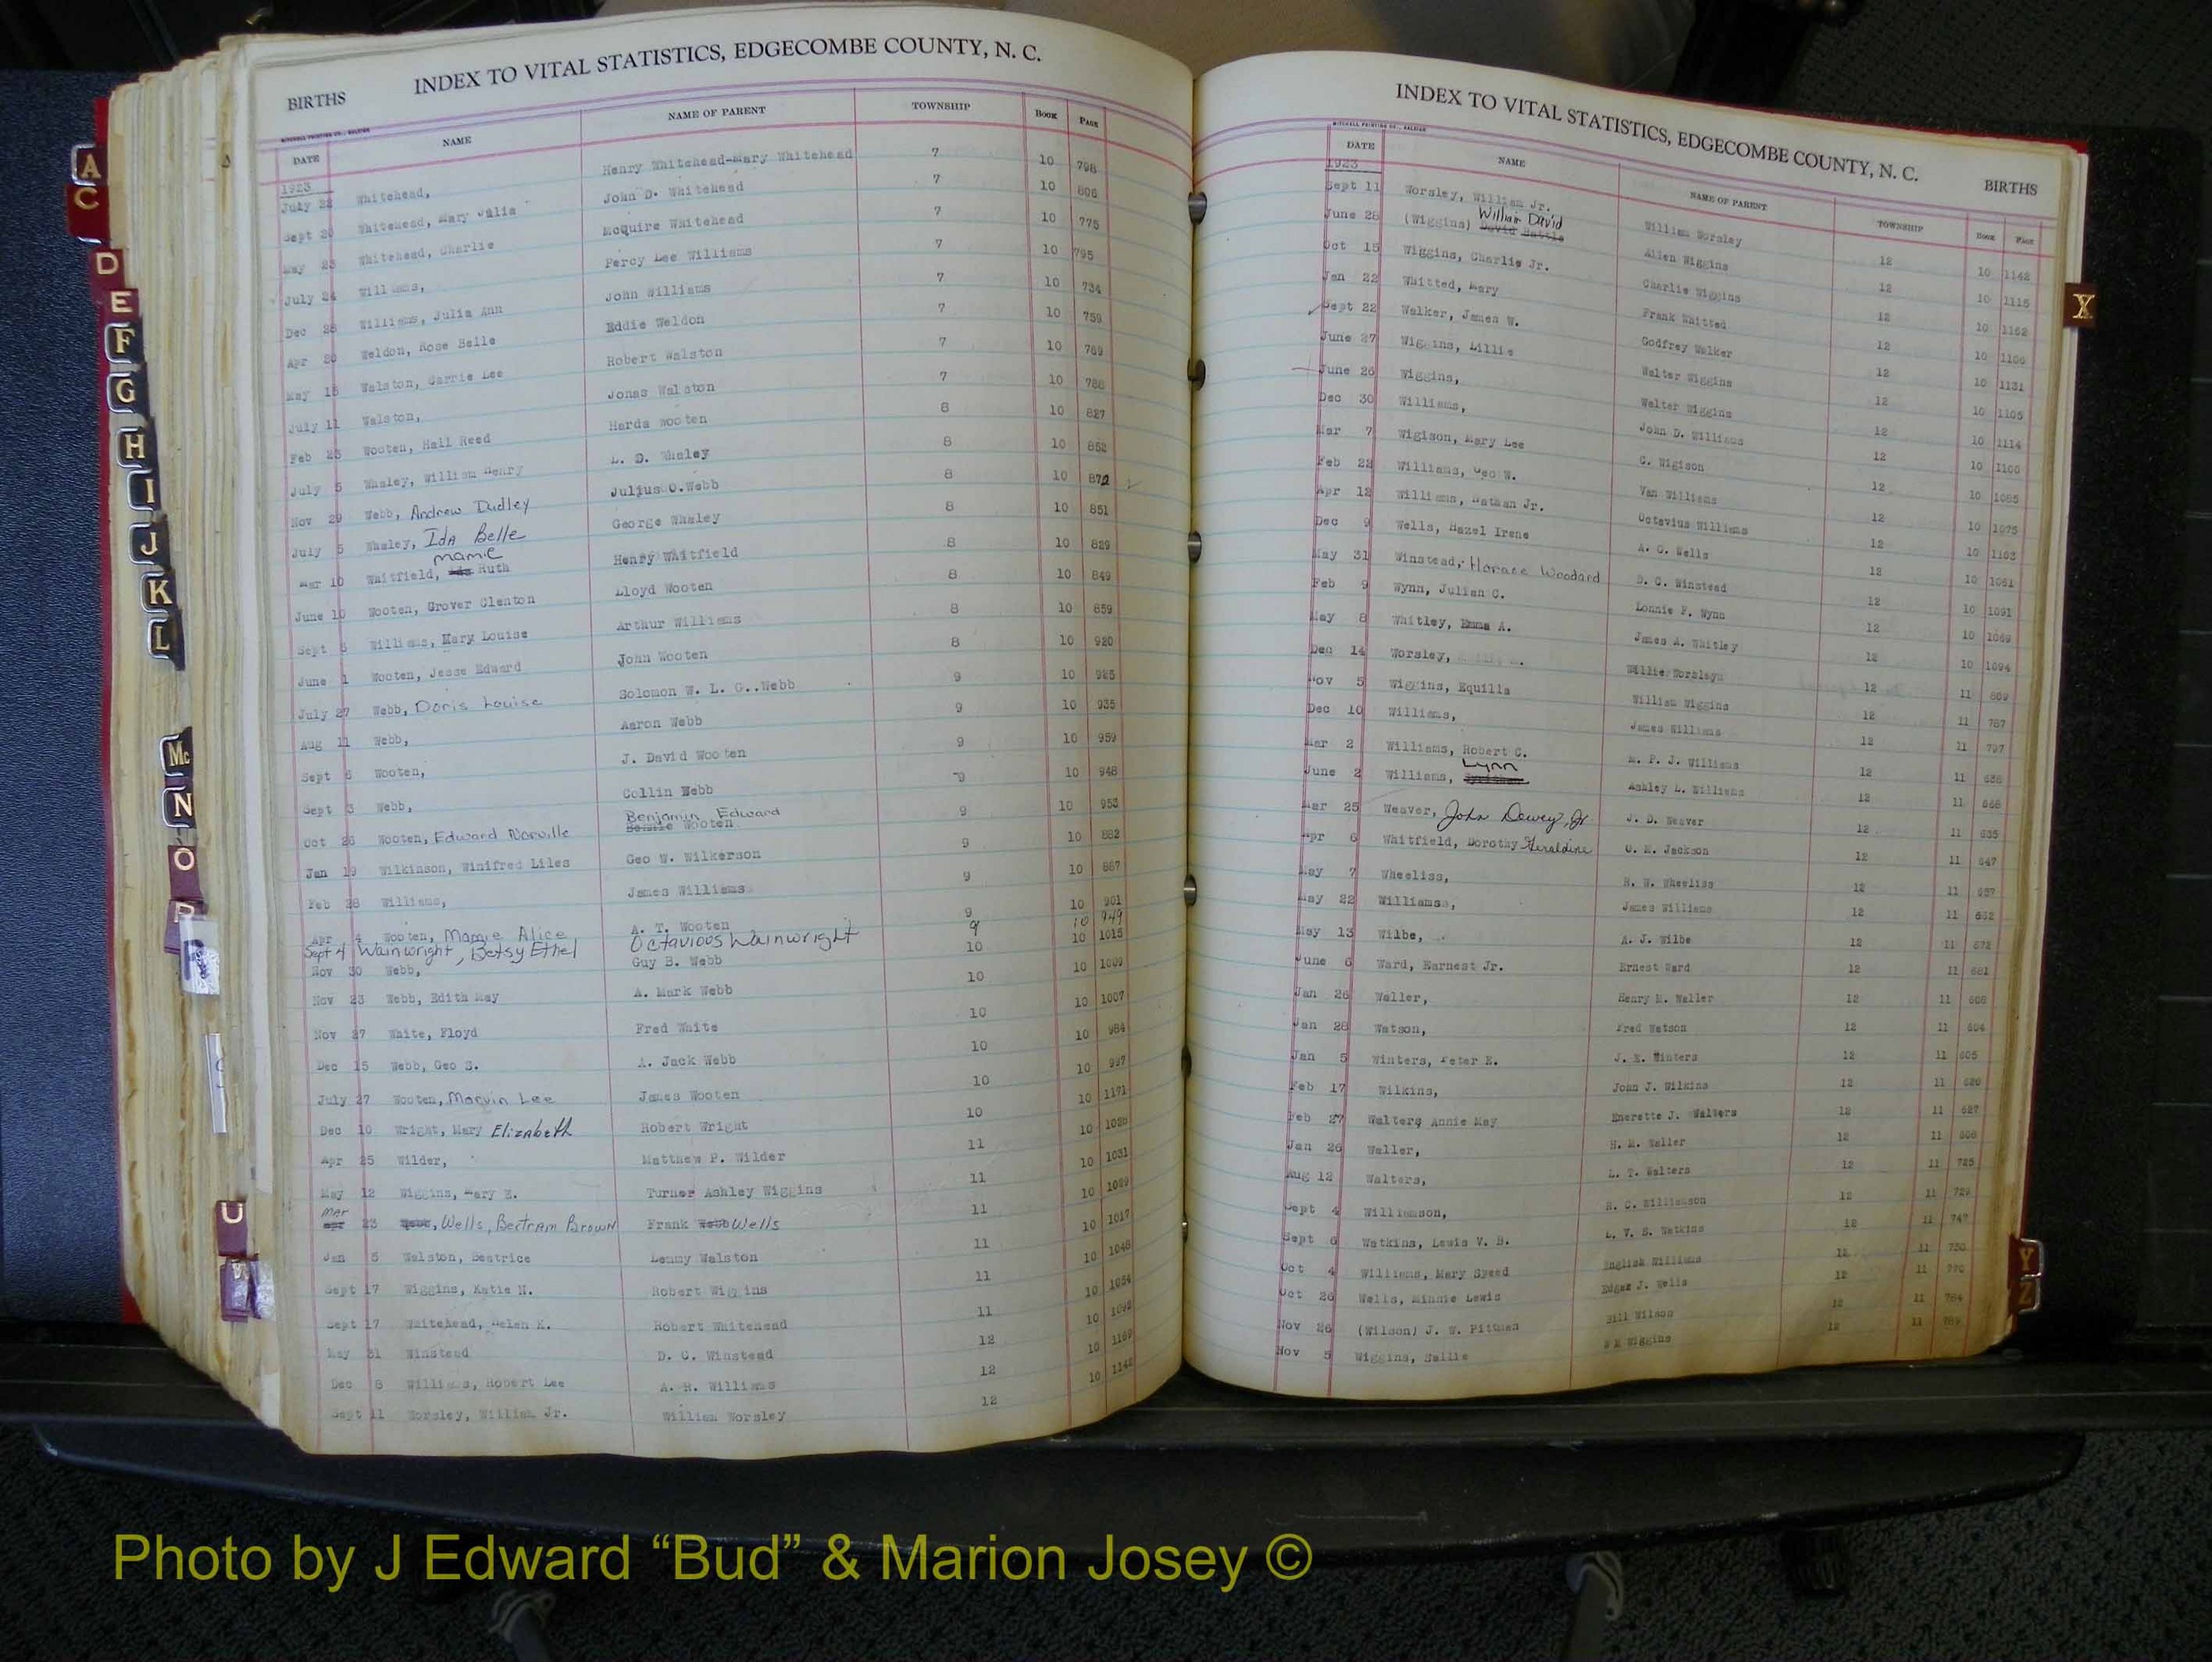 INDEX TO VITAL STATISTICS, EDGECOMBE COUNTY, N. C.
BIRTHS
MITCHELL PRINTING CO., RALEIGH
DATE NAME NAME OF PARENT TOWNSHIP BOOK PAGE
1923
July 22 Whitehead, Henry Whitehead-Mary Whitehead 7 10 798
Sept 20 Whitehead, Mary Julia John D. Whitehead 7 10 808
May 23 Whitehead, Charlie McQuire Whitehead 7 10 775
July 24 Williams, Percy Lee Williams 7 10 795
Dec 28 Williams, Julia Ann John Williams 7 10 734
Apr 30 Weldon, Rose Belle Eddie Weldon 7 10 759
May 15 Walston, Carrie Lee Robert Walston 7 10 769
July 11 Walston, Jonas Walston 7 10 788
Feb 23 Wooten, Hall Reed Harda Wooten 8 10 827
July 5 Whaley, William Henry L. D. Whaley 8 10 852
Nov 29 Webb, Andrew Dudley Julius O. Webb 8 10 872
July 5 Whaley, Ida Belle George Whaley 8 10 851
Mar 10 Whitfield, Mamie Ruth Henry Whitfield 8 10 829
June 10 Wooten, Grover Clenton Lloyd Wooten 8 10 849
Sept 3 Williams, Mary Louise Arthur Williams 8 10 859
June 1 Wooten, Jesse Edward John Wooten 8 10 920
July 27 Webb, Doris Louise Solomon W. L. G..Webb 9 10 925
Aug 11 Webb, Aaron Webb 9 10 935
Sept 6 Wooten, J. David Wooten 9 10 959
Sept 3 Webb, Collin Webb 9 10 948
Oct 26 Wooten, Edward Norville Benjamin Edward Wooten 9 10 953
Jan 19 Wilkinson, Winifred Liles Geo W. Wilkerson 9 10 882
Feb 28 Williams, James Williams 9 10 887
Apr 4 Wooten, Mamie Alice A. T. Wooten 9 10 901
Sept 4 Wainwright, Betsy Ethel Octavious Wainwright 9 10 949
Nov 30 Webb, Guy B. Webb 10 10 1015
Nov 23 Webb, Edith May A. Mark Webb 10 10 1009
Nov 27 White, Floyd Fred White 10 10 1007
Dec 15 Webb, Geo S. A. Jack Webb 10 10 984
July 27 Wooten, Marvin Lee James Wooten 10 10 997
Dec 10 Wright, Mary Elizabeth Robert Wright 10 10 1171
Apr 25 Wilder, Matthew P. Wilder 11 10
May 12 Wiggins, Mary E. Turner Ashley Wiggins 11 10 1031
Mar 23 Wells, Bertram Brown Frank Wells 11 10
Jan 5 Walston, Beatrice Lemmy Walston 11 10 1017
Sept 17 Wiggins, Katie N. Robert Wiggins 11 10 1048
Sept 17 Whitehead, Helen K. Robert Whitehead 11 10 1054
May 31 Winstead D. C. Winstead 12 10 1092
Dec 8 Williams, Robert Lee A. R. Williams 12 10 1169
Sept 11 Worsley, William Jr. William Worsley 12 10 1142
INDEX TO VITAL STATISTICS, EDGECOMBE COUNTY, N. C.
BIRTHS
MITCHELL PRINTING CO., RALEIGH
DATE NAME NAME OF PARENT TOWNSHIP BOOK PAGE
1923
Sept 11 Worsley, William Jr. William Worsley 12 10 1142
June 28 (Wiggins) William David Allen Wiggins 12 10 1115
Oct 15 Wiggins, Charlie Jr. Charlie Wiggins 12 10 1152
Jan 22 Whitted, Mary Frank Whitted 12 10 1106
Sept 22 Walker, James W. Godfrey Walker 12 10 1131
June 27 Wiggins, Lillie Walter Wiggins 12 10 1105
June 26 Wiggins, Walter Wiggins 12 10 1114
Dec 30 Williams, John D. Williams 12 10 1166
Mar 7 Wigison, Mary Lee C. Wigison 12 10 1085
Feb 22 Williams, Geo W. Van Williams 12 10 1075
Apr 12 Williams, Nathan Jr. Octavius Williams 12 10 1103
Dec 9 Wells, Hazel Irene A. G. Wells 12 10 1061
May 31 Winstead, Horace Woodard D. C. Winstead 12 10 1091
Feb 9 Wynn, Julian C. Lonnie F. Wynn 12 10 1069
May 8 Whitley, Emma A. James A. Whitley 12 10 1094
Dec 14 Worsley, Willie Worsley 12 11 809
Nov 5 Wiggins, Equilla William Wiggins 12 11 787
Dec 10 Williams, James Williams 12 11 797
Mar 2 Williams, Robert C. M. P. J. Williams 12 11 638
June 2 Williams, Lynn Ashley L. Williams 12 11 668
Mar 25 Weaver, John Dewey, Jr J. D. Weaver 12 11 635
Apr 6 Whitfield, Dorothy Geraldine O. M. Jackson 12 11 647
May 7 Wheeliss, H. W. Wheeliss 12 11 657
May 22 Williams, James Williams 12 11 662
May 13 Wilbe, A. J. Wilbe 12 11 672
June 6 Ward, Earnest Jr. Ernest Ward 12 11 681
Jan 26 Waller, Henry M. Waller 12 11 608
Jan 28 Watson, Fred Watson 12 11 604
Jan 5 Winters, Peter E. J. E. Winters 12 11 605
Feb 17 Wilkins, John J. Wilkins 12 11 620
Feb 27 Walters Annie May Enerette J. Walters 12 11 627
Jan 26 Waller, H. M. Waller 12 11 608
Aug 12 Walters, L. T. Walters 12 11 725
Sept 4 Williamson, R. C. Williamson 12 11 729
Sept 6 Watkins, Lewis V. B. L. V. B. Watkins 12 11 747
Oct 4 Williams, Mary Speed English Williams 12 11 750
Oct 26 Wells, Minnie Lewis Edgar J. Wells 12 11 770
Nov 26 (Wilson) J. W. Pittman Bill Wilson 12 11 784
Nov 5 Wiggins, Sallie Wm Wiggins 12 11
A
C
D
E
F
G
H
I
J
K
L
Mc
N
O
P
R
U
W
X
Y
Z
Photo by J Edward “Bud” & Marion Josey ©